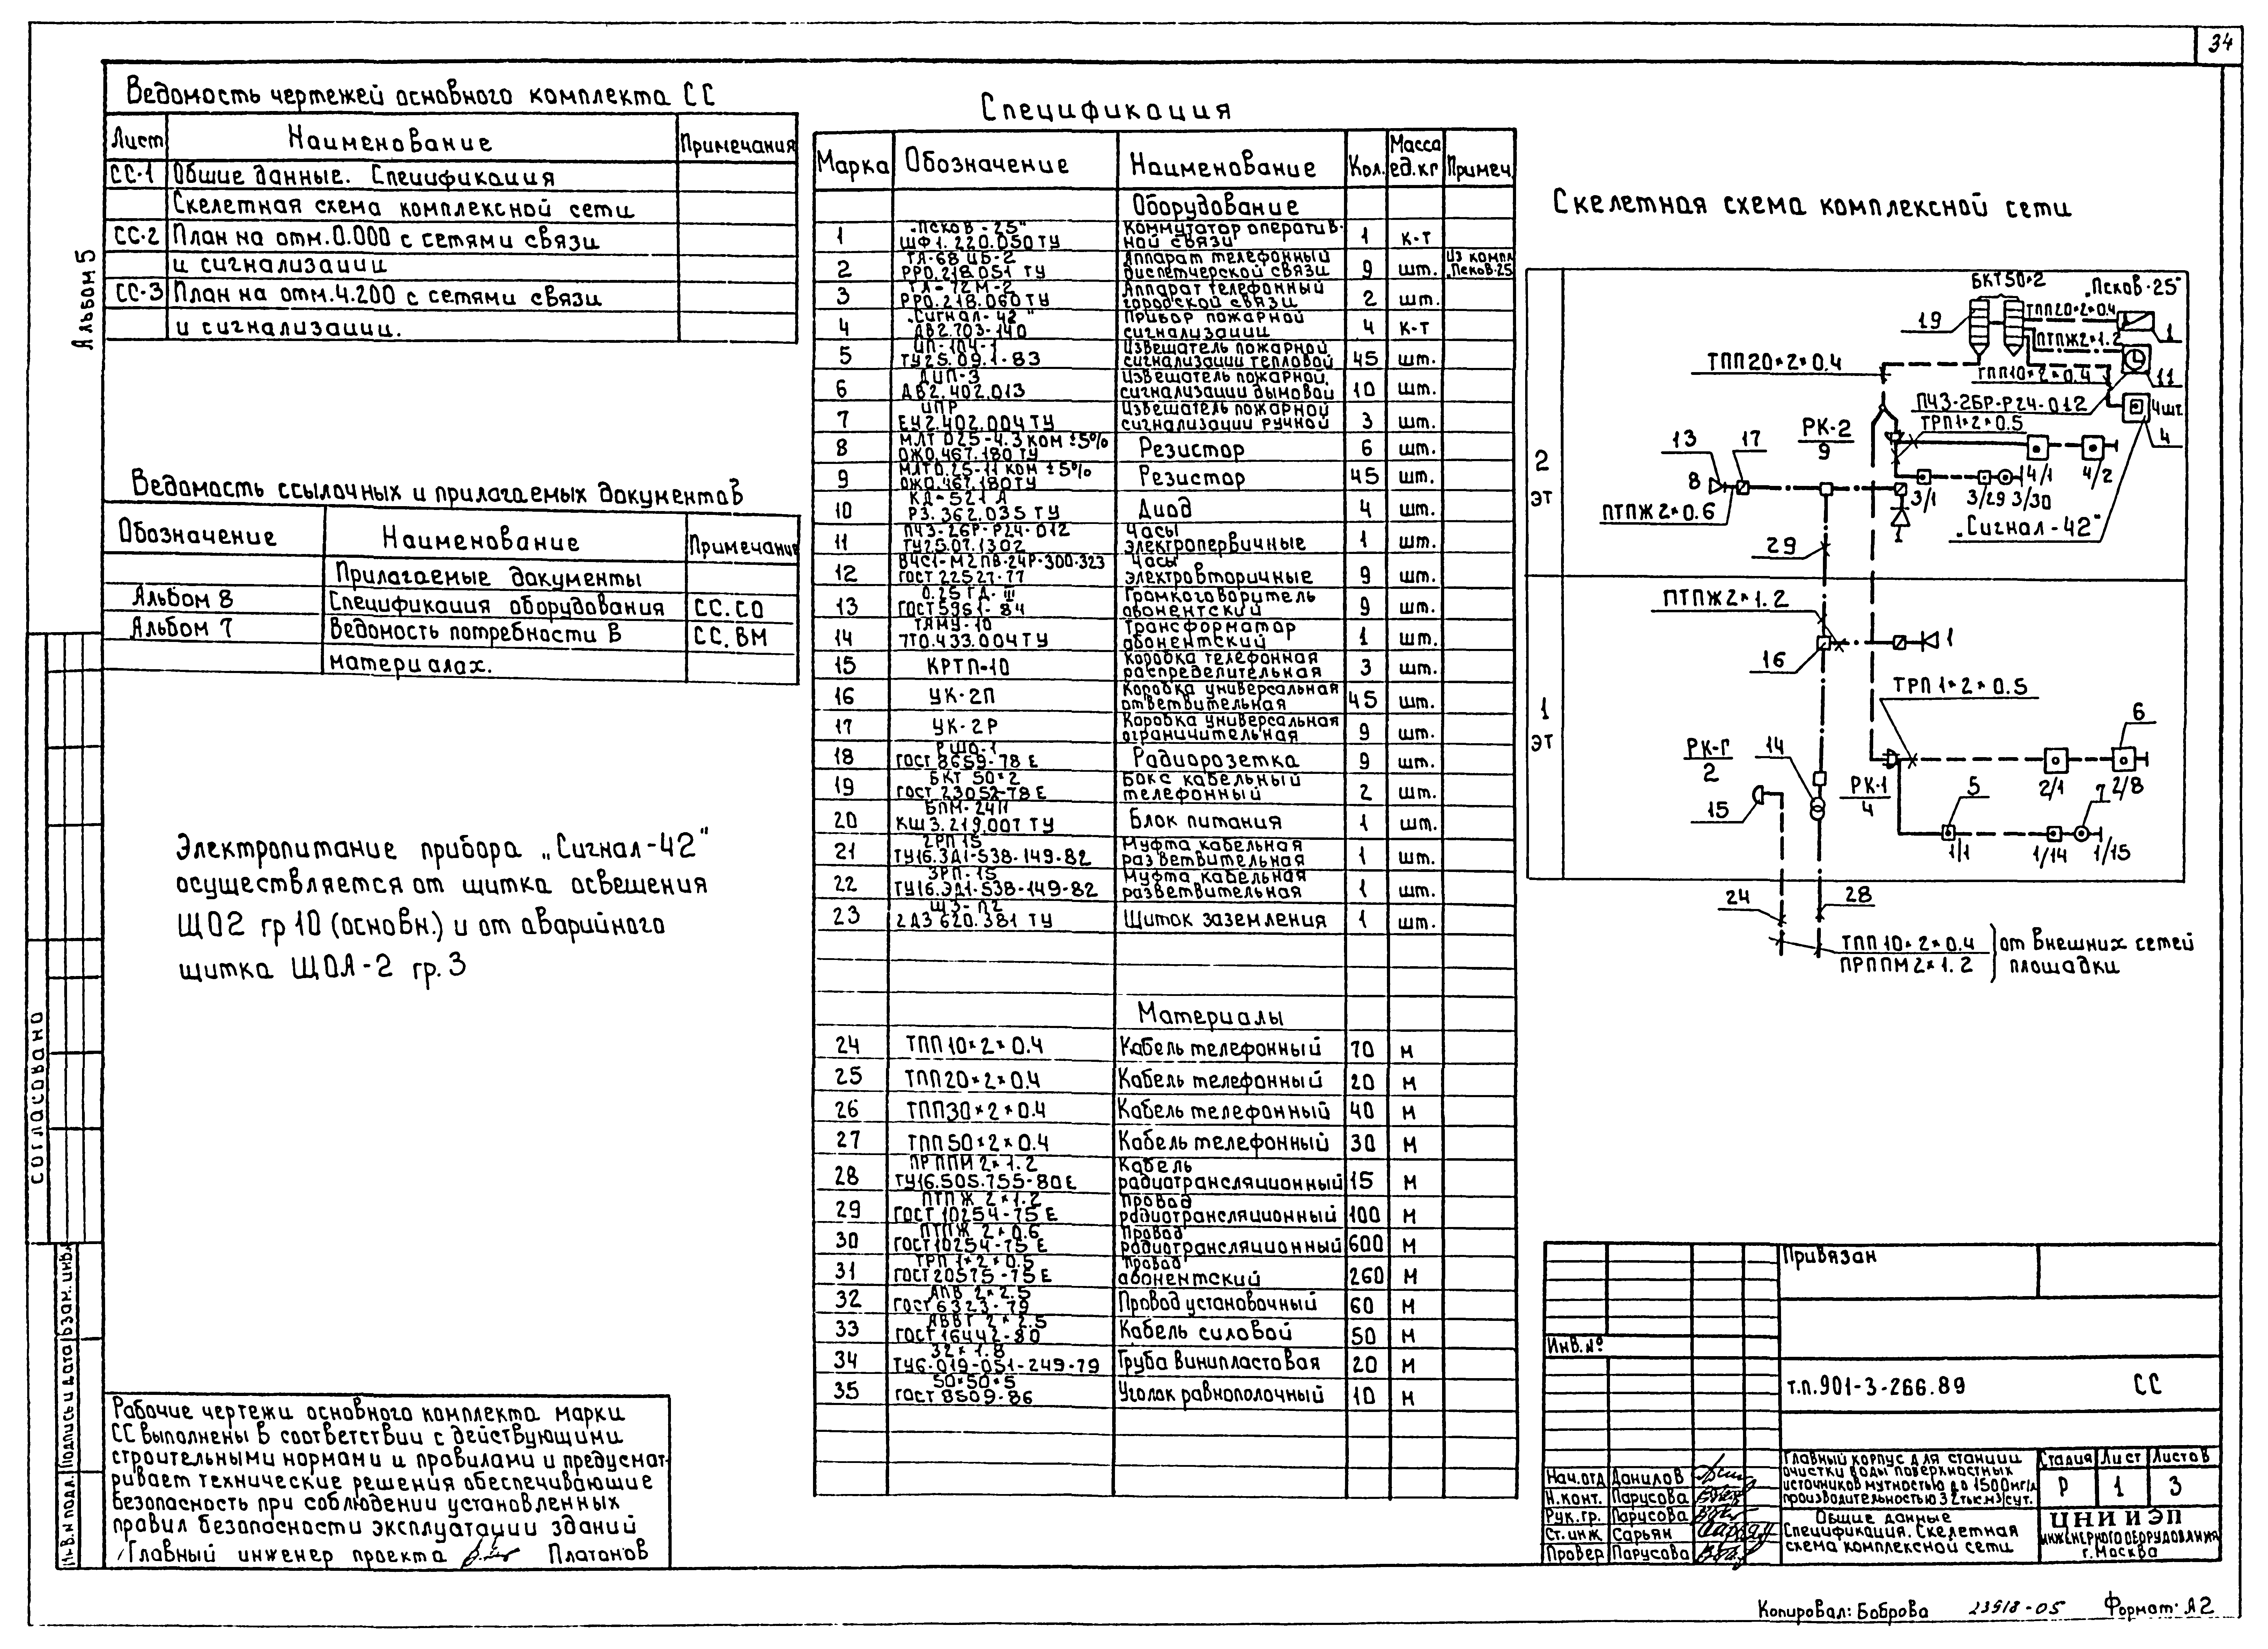 34
Альбом 5
Ведомость чертежей основного комплекта СС
Лист Наименование Примечания
СС-1 Общие данные. Спецификация
Скелетная схема комплексной сети
СС-2 План на отм.0.000 с сетями связи
и сигнализации
СС-3 План на отм.4.200 с сетями связи
и сигнализации.
Ведомость ссылочных и прилагаемых документов
Обозначение Наименование Примечание
Прилагаемые документы
Альбом 8 Спецификация оборудования СС.СО
Альбом 7 Ведомость потребности в СС.ВМ
материалах.
Электропитание прибора „Сигнал-42"
осуществляется от щитка освещения
ЩО2 гр 10 (основн.) и от аварийного
щитка ЩОА-2 гр.3
Рабочие чертежи основного комплекта марки
СС выполнены в соответствии с действующими
строительными нормами и правилами и предусмат-
ривает технические решения обеспечивающие
безопасность при соблюдении установленных
правил безопасности эксплуатации зданий
Главный инженер проекта Платонов
согласовано
Инв.N подл. Подпись и дата Взам. инв.
Спецификация
Марка Обозначение Наименование Кол. Масса ед.кг Примеч.
Оборудование
1 „Псков-25" ШФ1.220.050ТУ Коммутатор оператив-ной связи 1 к-т
2 ТА-68 ЦБ-2 РРО.218.051 ТУ Аппарат телефонный диспетчерской связи 9 шт. Из компл „Псков-25
3 ТА-72М-2 РРО.218.060ТУ Аппарат телефонный городской связи 2 шт.
4 „Сигнал-42" ДВ2.703-140 Прибор пожарной сигнализации 4 к-т
5 ИП-104-1 ТУ25.09.1-83 Извещатель пожарной сигнализации тепловой 45 шт.
6 ДИП-3 ДВ2.402.013 Извещатель пожарной сигнализации дымовой 10 шт.
7 ИПР ЕУ2.402.004ТУ Извещатель пожарной сигнализации ручной 3 шт.
8 МЛТ 025-4.3 ком ±5% ОЖО.467.180ТУ Резистор 6 шт.
9 МЛТ0.25-11 ком ±5% ОЖО.467.180ТУ Резистор 45 шт.
10 КД-521 А РЗ.362.035 ТУ Диод 4 шт.
11 ПЧЗ-2БР-Р24-012 ТУ25.07.1302 Часы электропервичные 1 шт.
12 ВЧС1-М2ПВ-24Р-300-323 ГОСТ 22527-77 Часы электровторичные 9 шт.
13 0.25 ГД-III ГОСТ5961-84 Громкоговоритель абонентский 9 шт.
14 ТАМУ-10 7ТО.433.004ТУ Трансформатор абонентский 1 шт.
15 КРТП-10 Коробка телефонная распределительная 3 шт.
16 УК-2П Коробка универсальная ответвительная 45 шт.
17 УК-2Р Коробка универсальная ограничительная 9 шт.
18 РШО-1 ГОСТ 8659-78 Е Радиорозетка 9 шт.
19 БКТ 50×2 ГОСТ 23052-78Е Бокс кабельный телефонный 2 шт.
20 БПМ-24П КШ3.219.007 ТУ Блок питания 1 шт.
21 2РП15 ТУ16.ЭД1-538-149-82 Муфта кабельная разветвительная 1 шт.
22 3РП-15 ТУ16.ЭД1-538-149-82 Муфта кабельная разветвительная 1 шт.
23 ЩЗ-П2 2ДЗ 620.381 ТУ Щиток заземления 1 шт.
Материалы
24 ТПП10×2×0.4 Кабель телефонный 70 м
25 ТПП20×2×0.4 Кабель телефонный 20 м
26 ТПП30×2×0.4 Кабель телефонный 40 м
27 ТПП50×2×0.4 Кабель телефонный 30 м
28 ПРППМ 2×1.2 ТУ16.505.755-80Е Кабель радиотрансляционный 15 м
29 ПТПЖ 2×1.2 ГОСТ 10254-75 Е Провод радиотрансляционный 100 м
30 ПТПЖ 2×0.6 ГОСТ10254-75 Е Провод радиотрансляционный 600 м
31 ТРП 1×2×0.5 ГОСТ20575-75Е Провод абонентский 260 м
32 АПВ 2×2.5 ГОСТ6323-79 Провод установочный 60 м
33 АВВГ 2×2.5 ГОСТ16442-80 Кабель силовой 50 м
34 32×1.8 ТУ6-019-051-249-79 Труба винипластовая 20 м
35 50×50×5 ГОСТ 8509-86 Уголок равнополочный 10 м
Скелетная схема комплексной сети
БКТ50×2 „Псков-25"
19 ТПП20×2×0.4 1
ПТПЖ2×1.2
ТПП20×2×0.4 ТПП10×2×0.4 11
ПЧЗ-2БР-Р24-012 4шт.
ТРП1×2×0.5 4
13 17 РК-2
9
2 эт
8 4/1 4/2
3/1 3/29 3/30
ПТПЖ2×0.6 1 „Сигнал-42"
29
ПТПЖ2×1.2
16 1
ТРП1×2×0.5
1 эт
6
РК-Г
2
14
15 РК-1
4
5 2/1 7 2/8
1/1 1/14 1/15
24 28
ТПП10×2×0.4
ПРППМ2×1.2
от внешних сетей
площадки
Привязан
Инв.№
т.п.901-3-266.89 СС
Нач.отд Данилов
Н.конт. Парусова
Рук.гр. Парусова
Ст.инж Сарьян
Провер Парусова
Главный корпус для станции
очистки воды поверхностных
источников мутностью до 1500мг/л
производительностью 32тыс.м3/сут.
Стадия Лист Листов
Р 1 3
Общие данные
Спецификация. Скелетная
схема комплексной сети
ЦНИИЭП
инженерного оборудования
г.Москва
Копировал: Боброва 23918-05 Формат: А2